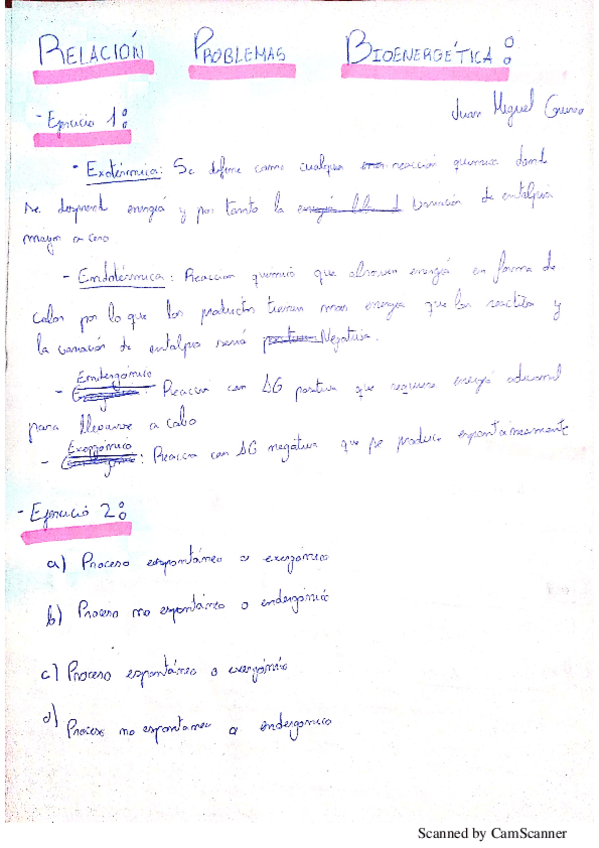 RELACIÓN PROBLEMAS BIOENERGÉTICA:
- Ejercicio 1:
Juan Miguel
- Exotérmica: Se define como cualquier reacción química donde
se desprend energía y por tanto la energía libre d variación de entalpia
mayor a cero
- Endotérmica: Reaccion quimica que absorven energía en forma de
calor por lo que los productos tienen mas energia que los reactivos y
la variación de entalpia será positiva Negativa.
Endergónico
- : Reacción con ΔG positiva que requiere energía adicional
para llevarse a cabo
Exergónico
- : Reaccion con ΔG negativa que se produce espontaineamente
- Ejercicio 2:
a) Proceso espontáneo o exergónico
b) Proceso no espontáneo o endergónico
c) Proceso espontáneo o exergónico
d) Proceso no espontaneo o endergonico
Scanned by CamScanner